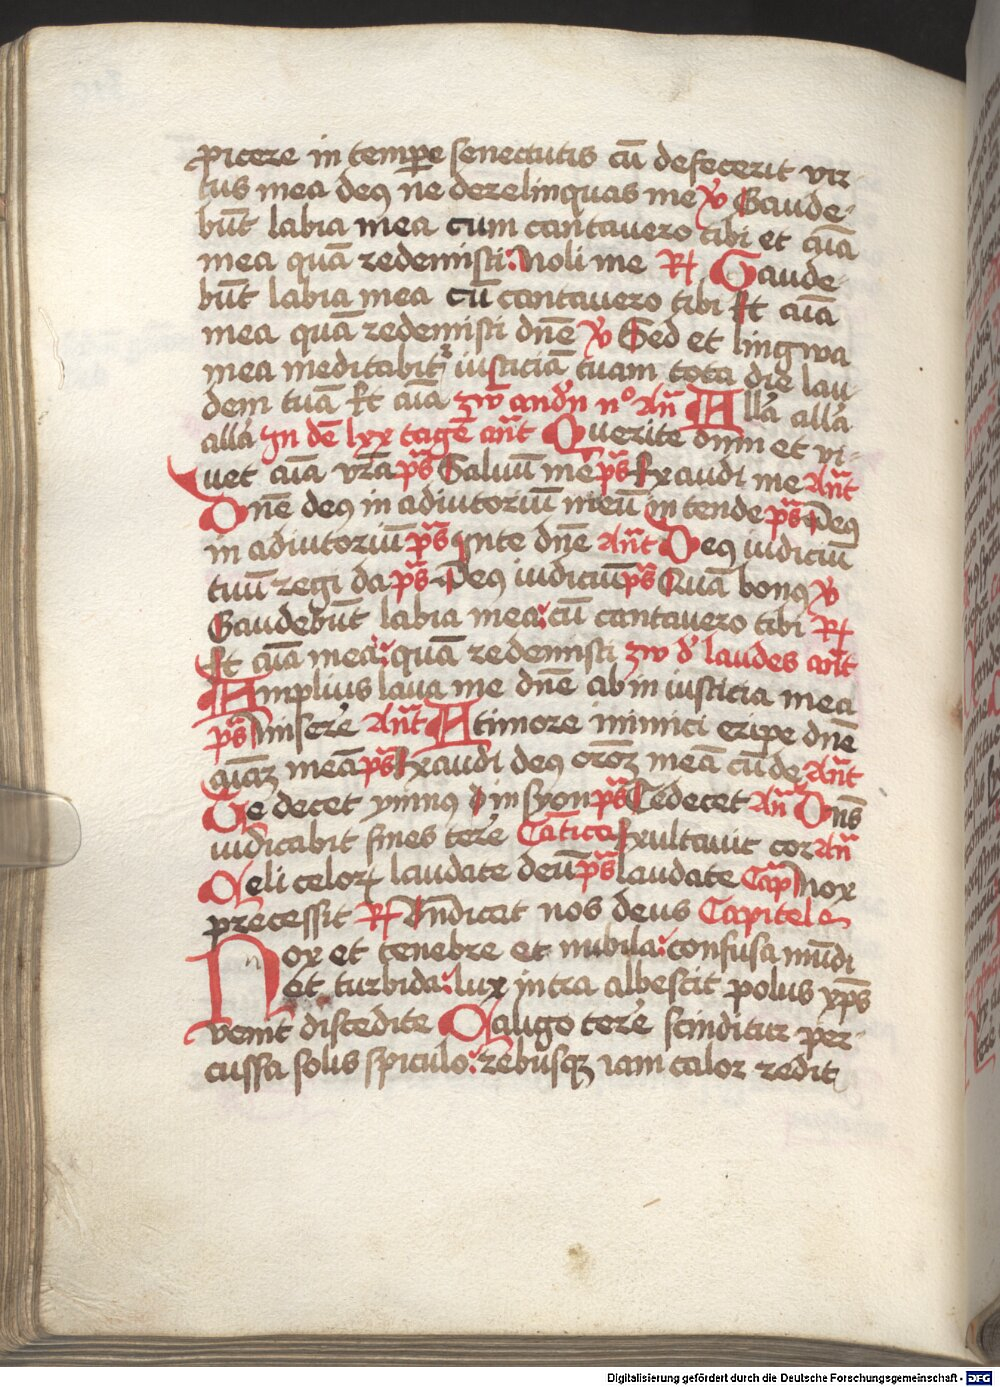 picere in tempore senectutis cū defecerit vir-
tus mea deꝰ ne derelinquas me ℣ Gaude-
būt labia mea cum cantauero tibi et aīa
mea quā redemisti: Noli me ℟ Gaude-
būt labia mea cū cantauero tibi Et aīa
mea quā redemisti dn̄e ℣ Sed et lingwa
mea meditabitᷣ iusticiā tuam tota die lau
dem tuā Et aīa zw andn̄ nᵒ An̄ All'a all'a
all'a In dē lxx tagē an̄t Querite dnm et vi-
uet aīa vr̄a p̄s Saluū me p̄s Exaudi me An̄t
Dn̄e deꝰ in adiutoriū meū intende p̄s Deꝰ
in adiutoriū p̄s Inte dn̄e An̄t Deꝰ iudiciū
tuū regi da p̄s Deꝰ iudiciū p̄s Quā bonꝰ ℣
Gaudebūt labia mea: cū cantauero tibi ℟
Et aīa mea: quā redemisti zw d' laudes an̄t
Amplius laua me dn̄e ab in iusticia mea
p̄s Miserē An̄t A timore inimici eripe dn̄e
aīaꝫ meā p̄s Exaudi deꝰ orōꝫ meā cū de An̄t
Te decet ymnꝰ d in syon p̄s Te decet An̄ Dn̄s
iudicabit fines terre Cātica Exultauit cor An̄
Celi celoꝝ laudate deū p̄s laudate Cap̄ Nox
precessit ℟ Indicat nos deus Capitel
Nox et tenebre et nubila: confusa mūdi
et turbida: lux intra albescit polus xp̄s
venit discedite Caligo terre scinditur per-
cussa solis spiculo: rebusqꝫ iam calor redit
Digitalisierung gefördert durch die Deutsche Forschungsgemeinschaft - DFG